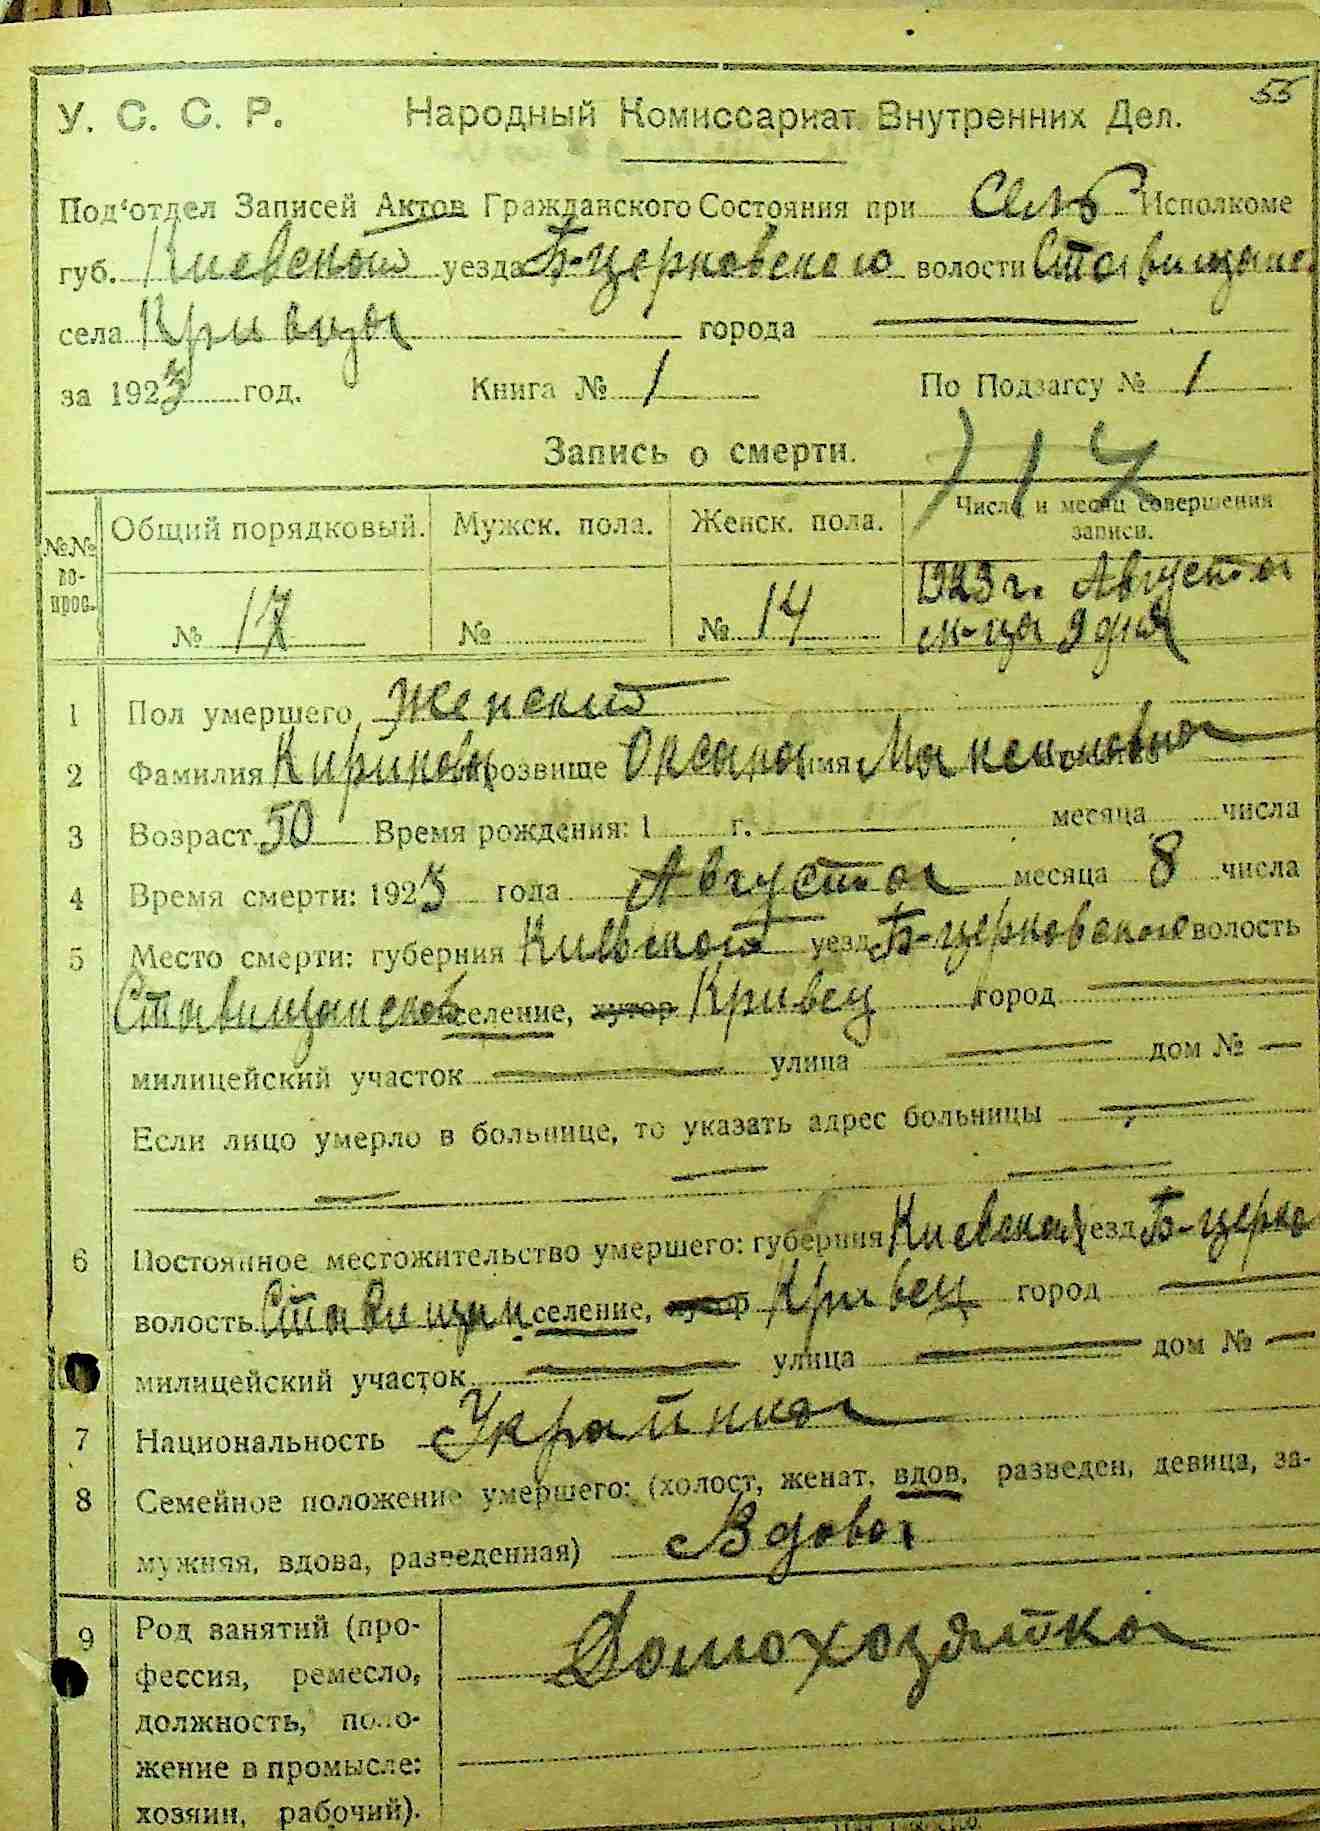 55
У. С. С. Р. Народный Комиссариат Внутренних Дел.
Под'отдел Записей Актов Гражданского Состояния при Исполкоме
губ. Киевской уезда Б-церковского волости Ставищанс.
села Кривца города
за 1923 год. Книга № 1 По Подзагсу № 1
Запись о смерти. 117
№№ во-прос. Общий порядковый. Мужск. пола. Женск. пола. Число и месяц совершения записи.
№ 17 № № 14 1923 г. Августа
м-ца 9 дня
1 Пол умершего Женский
2 Фамилия Кирикова прозвище Оксана имя Максимовна
3 Возраст 50 Время рождения: 1 г. месяца числа
4 Время смерти: 1923 года Августа месяца 8 числа
5 Место смерти: губерния Киевской уезд Б-церковского волость
Ставищанской селение, хутор Кривец город
милицейский участок улица дом №
Если лицо умерло в больнице, то указать адрес больницы
6 Постоянное местожительство умершего: губерния Киевская уезд Б-церко
волость Ставищан селение, хутор Кривец город
милицейский участок улица дом №
7 Национальность Украинка
8 Семейное положение умершего: (холост, женат, вдов, разведен, девица, за-
мужняя, вдова, разведенная) Вдова
9 Род занятий (про-
фессия, ремесло,
должность, поло-
жение в промысле:
хозяин, рабочий).
Домохозяйка